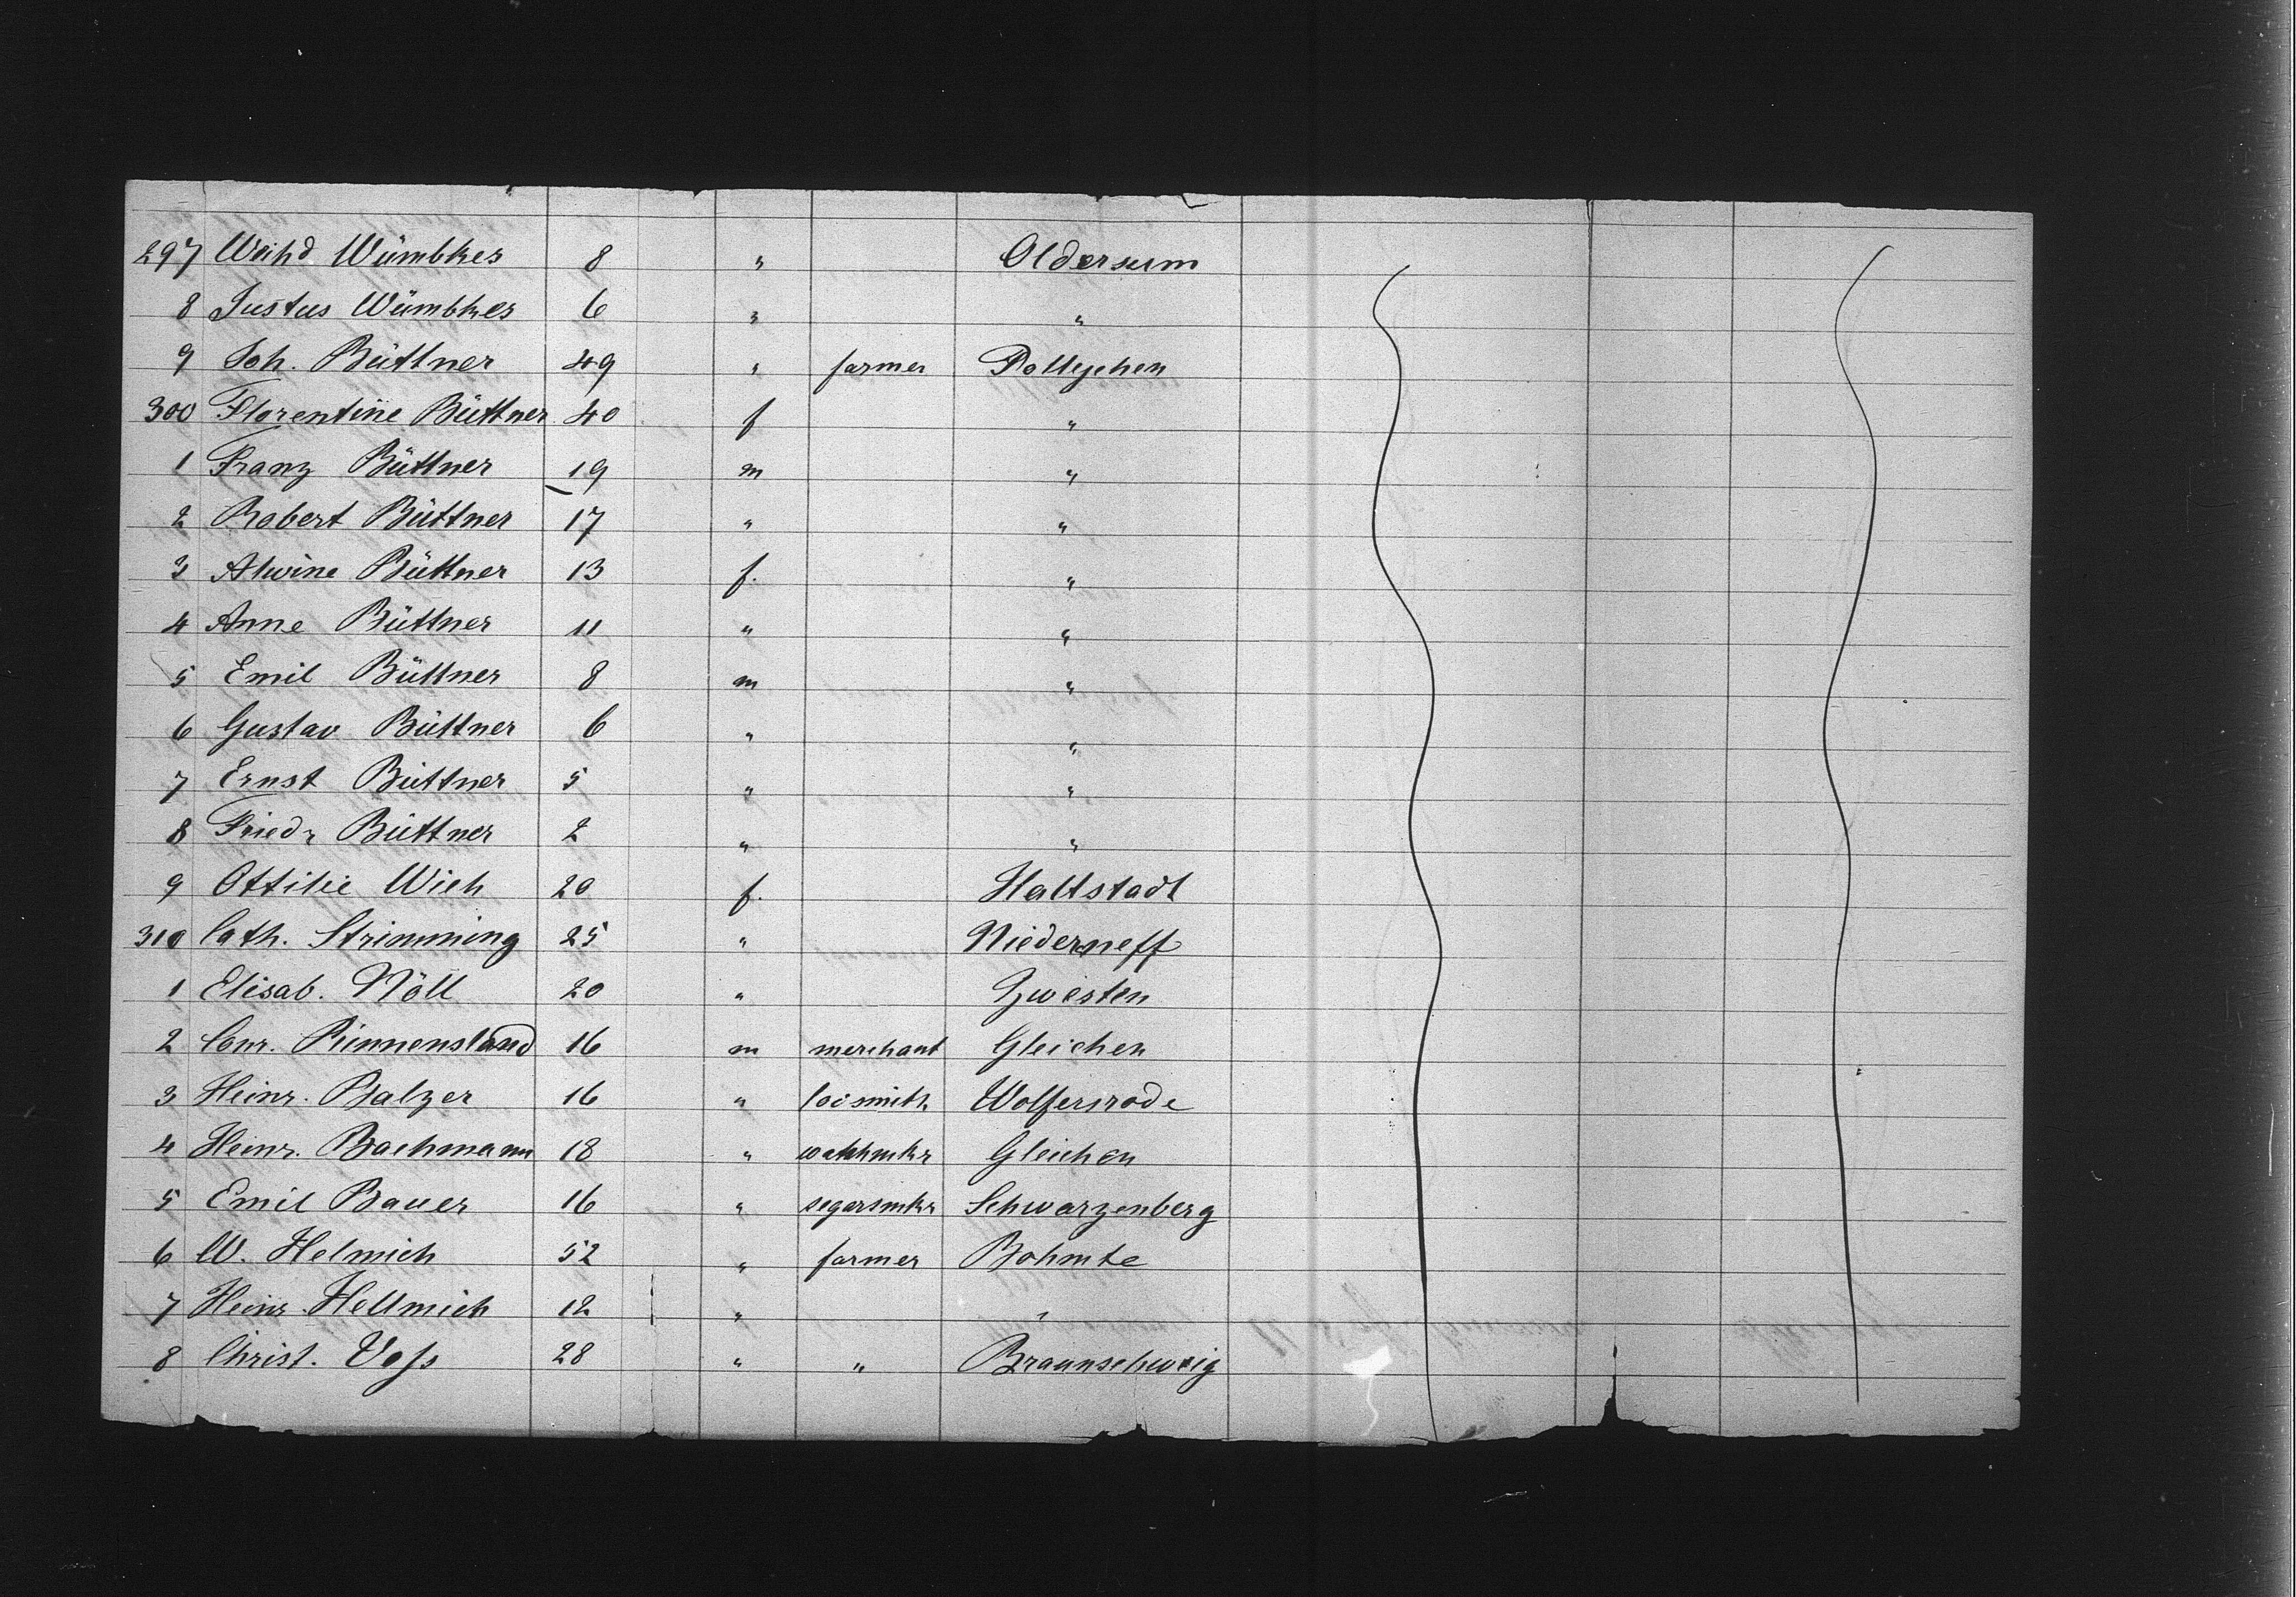 297 Weihd Wümbkes 8 " Oldersum
8 Justus Wümbkes 6 " "
9 Joh. Büttner 49 " farmer
300 Florentine Büttner 40 f "
1 Franz Büttner 19 m "
2 Robert Büttner 17 " "
3 Alwine Büttner 13 f. "
4 Anne Büttner 11 " "
5 Emil Büttner 8 m "
6 Gustav Büttner 6 " "
7 Ernst Büttner 5 " "
8 Friedr Büttner 2 " "
9 Ottilie Wieh 20 f. Haltstadt
310 Cath. Strimming 25 " Niederneff
1 Elisab. Nöll 20 " Zwesten
2 Conr. Rinnensland 16 m merchant Gleichen
3 Heinr. Balzer 16 " locsmith Wolfersrode
4 Heinr. Bachmann 18 " watchmkr Gleichen
5 Emil Bauer 16 " segarsmkr Schwarzenberg
6 W. Helmich 52 " farmer Bohmte
7 Heinr Hellmich 12 " "
8 Christ. Voß 28 " " Braunschweig